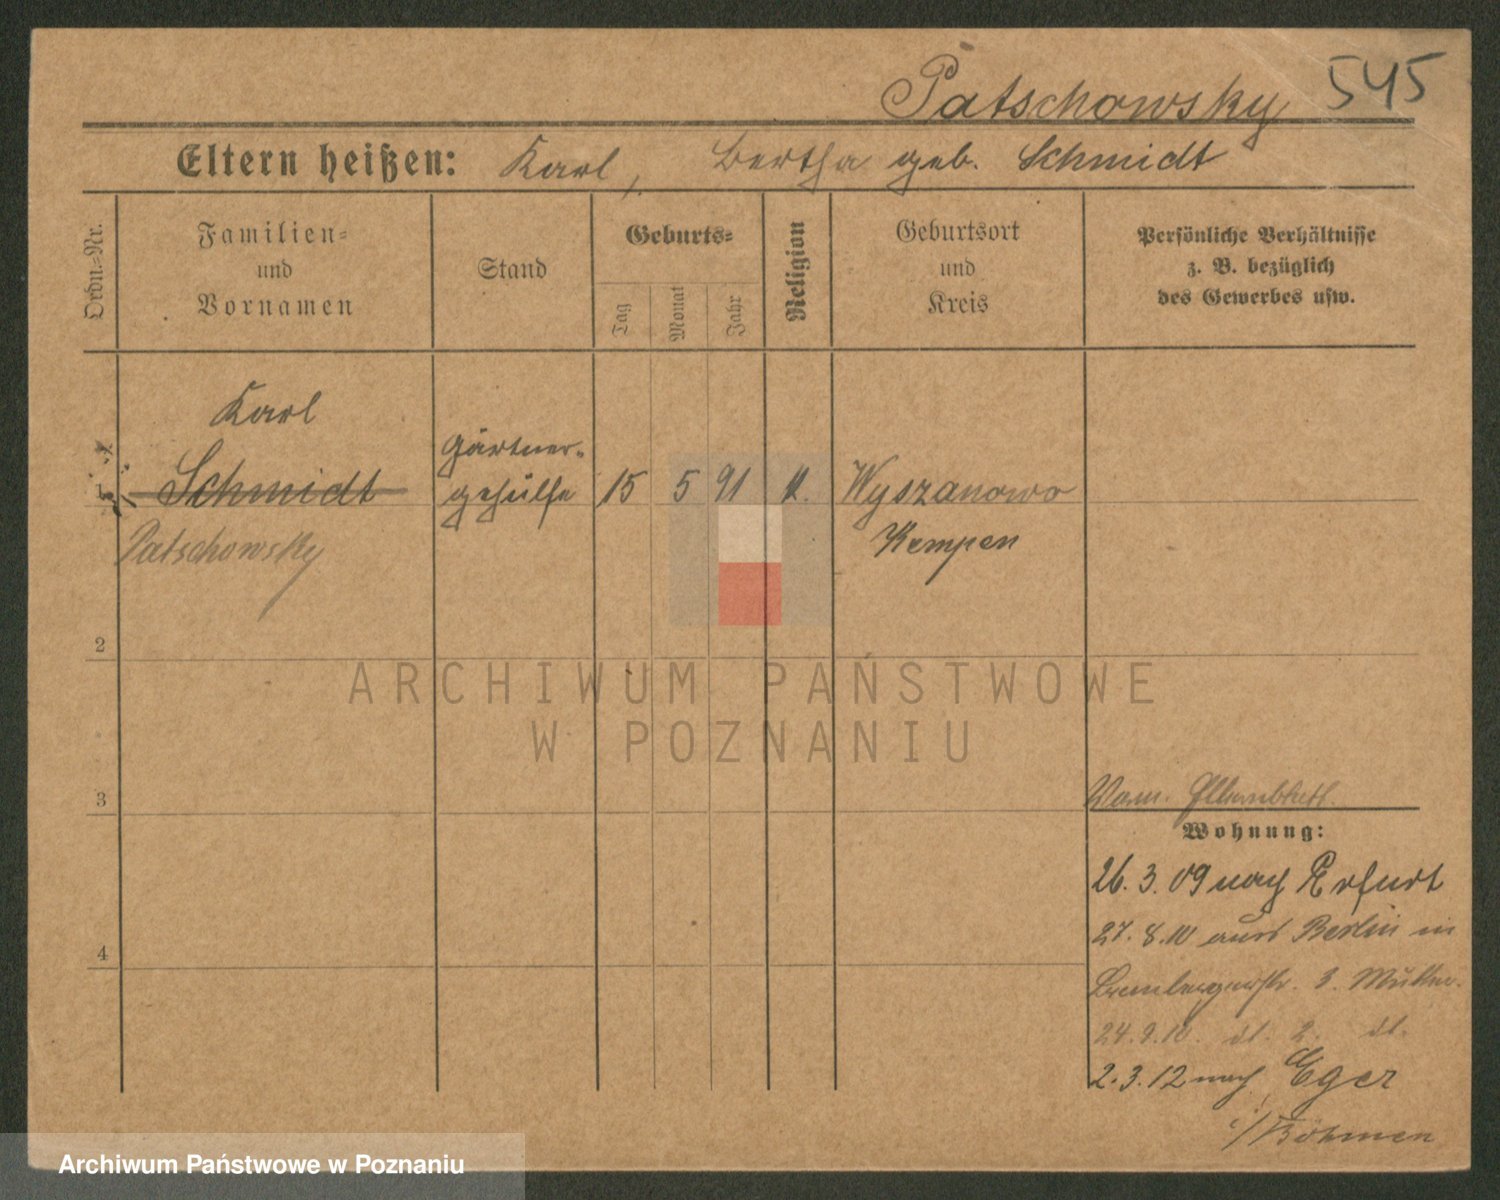 Patschowsky 545
Eltern heißen: Karl, Bertha geb. Schmidt
Ordn.-Nr.
Familien-
und
Vornamen
Stand
Geburts-
Tag
Monat
Jahr
Religion
Geburtsort
und
Kreis
Persönliche Verhältnisse
z. B. bezüglich
des Gewerbes usw.
Karl
1 Schmidt
Patschowsky
Gärtner-
gehülfe
15 5 91 k.
Wyszanowo
Kempen
2
3
4
Wohnung:
26. 3. 09 nach Erfurt
27. 8. 10 aus Berlin in
3. Mutter.
24. 9. 10. dt. 2. dt.
2. 3. 12 nach Eger
i/Böhmen
ARCHIWUM PAŃSTWOWE
W POZNANIU
Archiwum Państwowe w Poznaniu